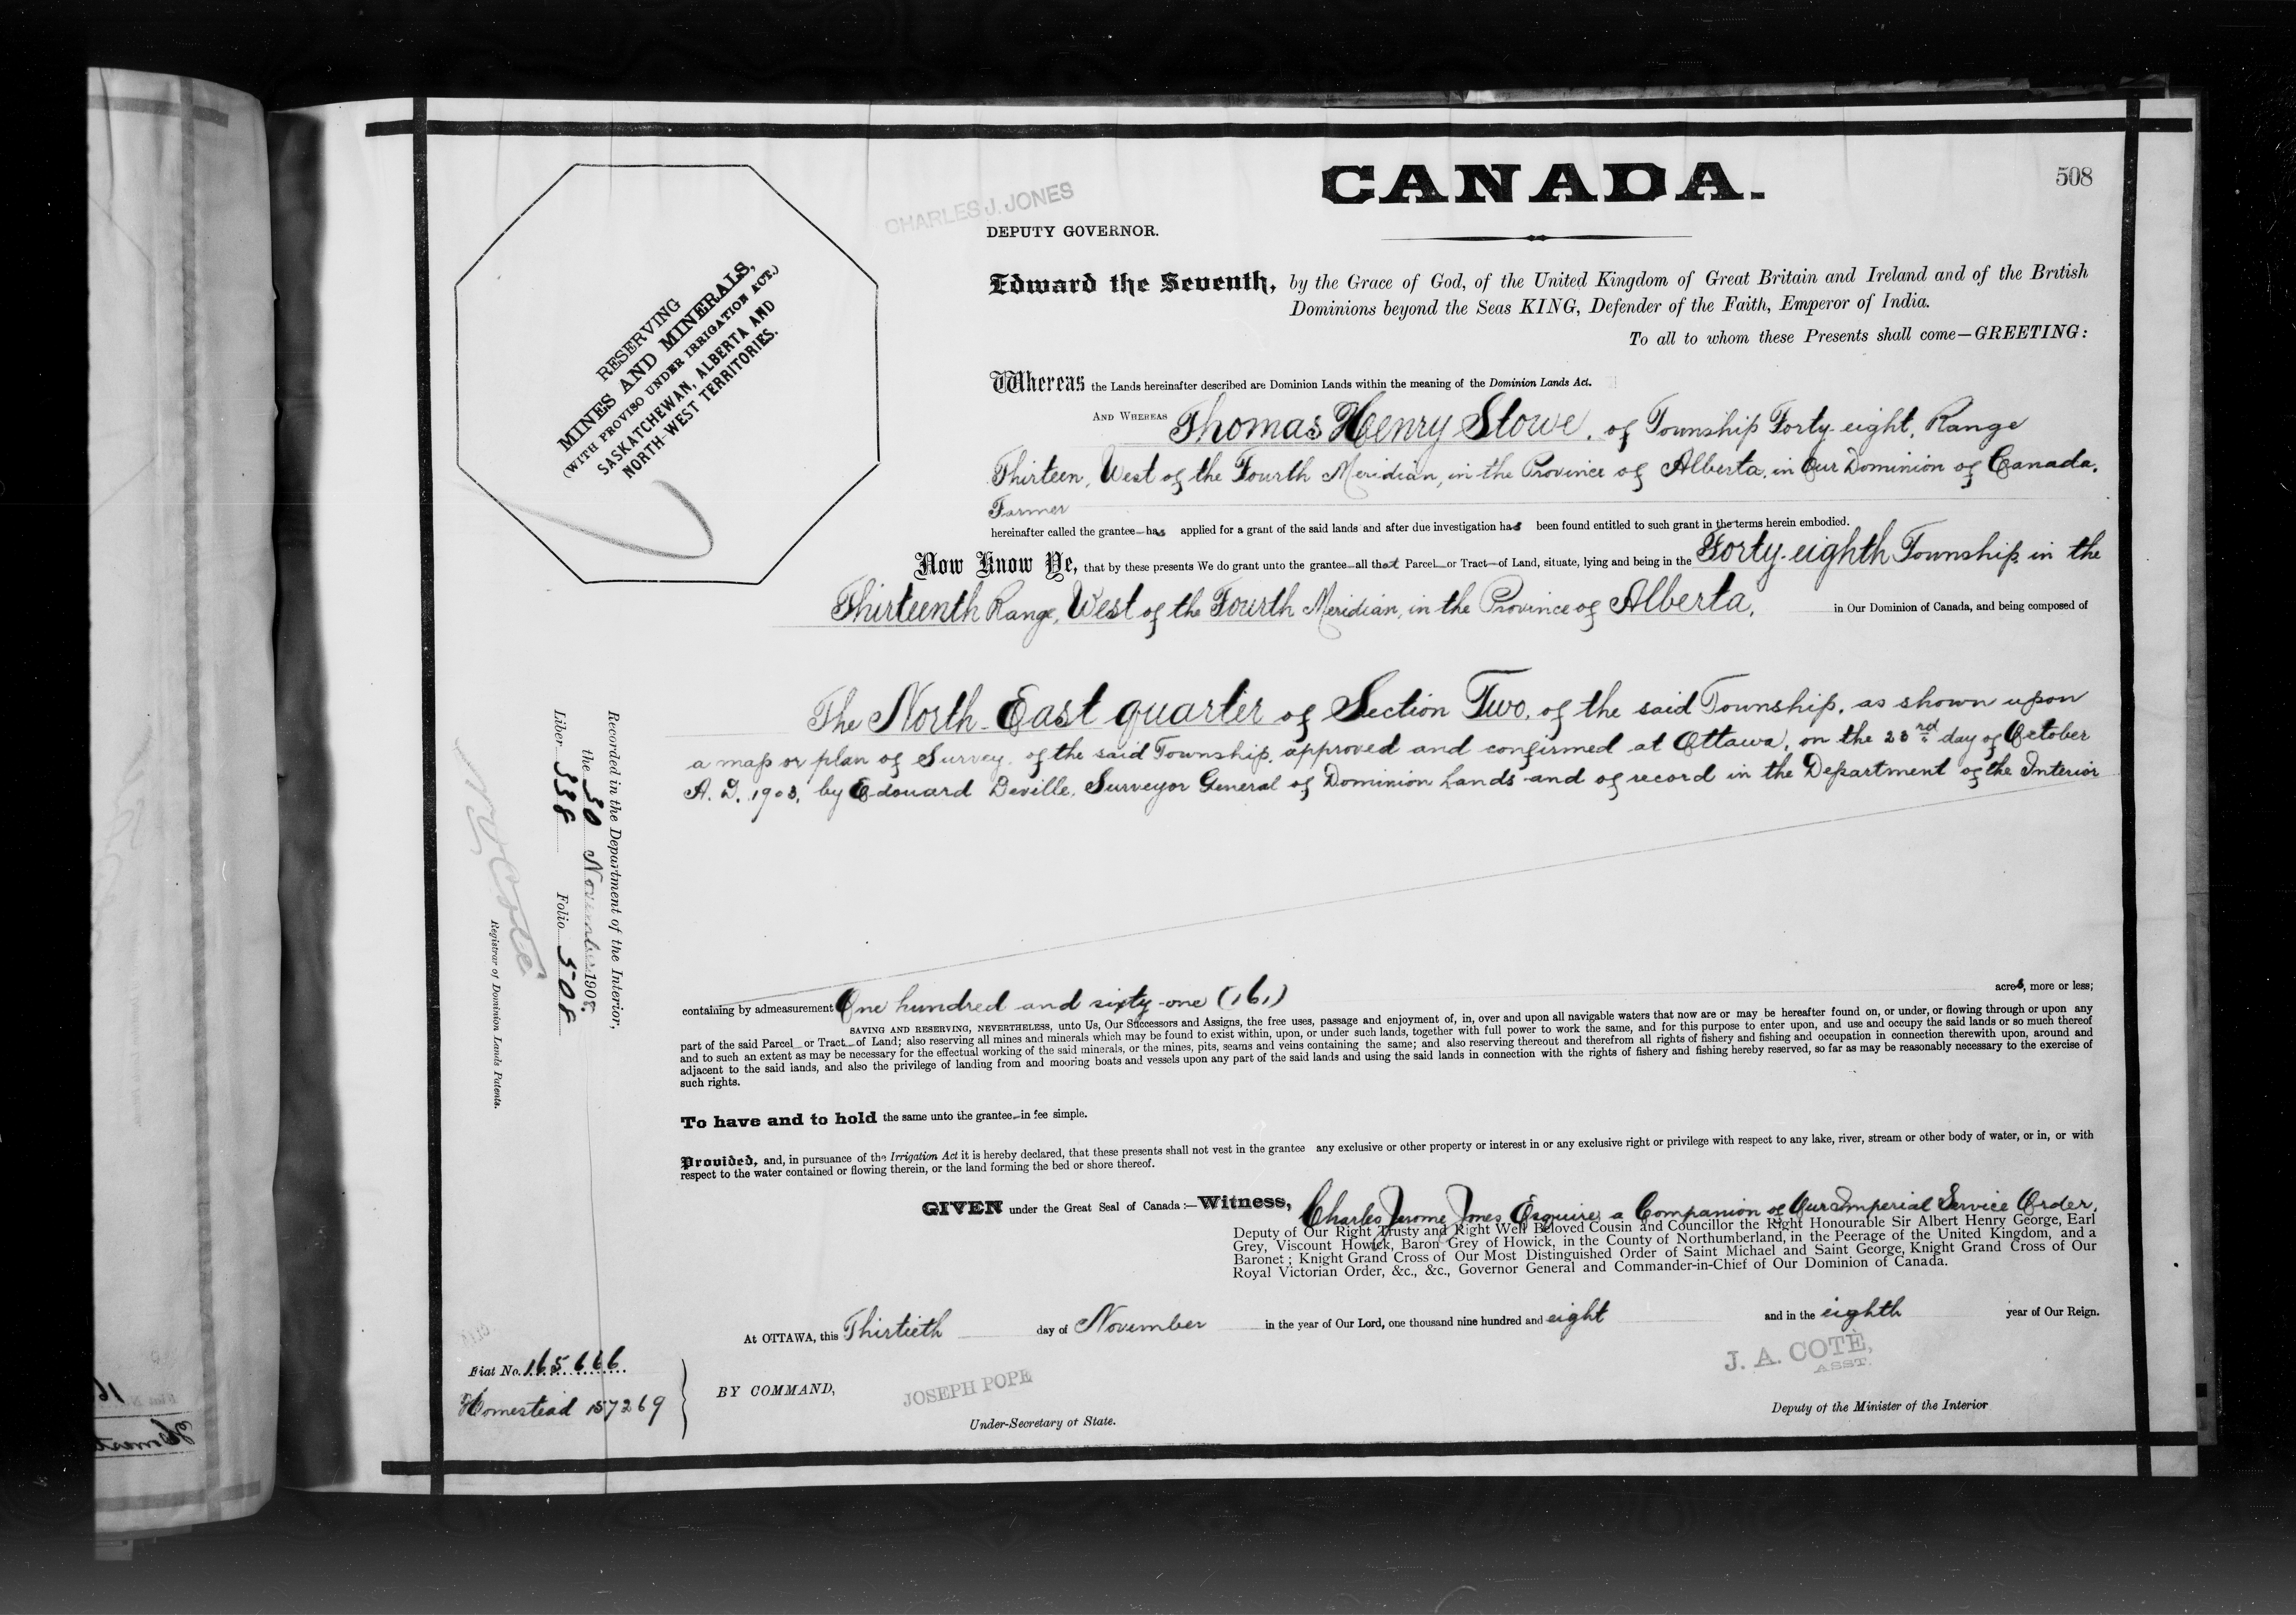 CANADA.
508
CHARLES J. JONES
DEPUTY GOVERNOR.
RESERVING
MINES AND MINERALS,
(WITH PROVISO UNDER IRRIGATION ACT.)
SASKATCHEWAN, ALBERTA AND
NORTH-WEST TERRITORIES.
Edward the Seventh, by the Grace of God, of the United Kingdom of Great Britain and Ireland and of the British
Dominions beyond the Seas KING, Defender of the Faith, Emperor of India.
To all to whom these Presents shall come—GREETING:
Whereas the Lands hereinafter described are Dominion Lands within the meaning of the Dominion Lands Act.
AND WHEREAS Thomas Henry Stowe, of Township Forty-eight, Range
Thirteen, West of the Fourth Meridian, in the Province of Alberta, in Our Dominion of Canada,
Farmer
hereinafter called the grantee—has applied for a grant of the said lands and after due investigation has been found entitled to such grant in the terms herein embodied.
Now Know Ye, that by these presents We do grant unto the grantee—all that Parcel—or Tract—of Land, situate, lying and being in the Forty-eighth Township, in the
Thirteenth Range, West of the Fourth Meridian, in the Province of Alberta, in Our Dominion of Canada, and being composed of
The North-East quarter of Section Two, of the said Township, as shown upon
a map or plan of Survey of the said Township, approved and confirmed at Ottawa, on the 23rd day of October
A. D. 1903, by Edouard Deville, Surveyor General of Dominion Lands and of record in the Department of the Interior
containing by admeasurement One hundred and sixty-one (161) acres, more or less;
SAVING AND RESERVING, NEVERTHELESS, unto Us, Our Successors and Assigns, the free uses, passage and enjoyment of, in, over and upon all navigable waters that now are or may be hereafter found on, or under, or flowing through or upon any
part of the said Parcel—or Tract—of Land; also reserving all mines and minerals which may be found to exist within, upon, or under such lands, together with full power to work the same, and for this purpose to enter upon, and use and occupy the said lands or so much thereof
and to such an extent as may be necessary for the effectual working of the said minerals, or the mines, pits, seams and veins containing the same; and also reserving thereout and therefrom all rights of fishery and fishing and occupation in connection therewith upon, around and
adjacent to the said lands, and also the privilege of landing from and mooring boats and vessels upon any part of the said lands and using the said lands in connection with the rights of fishery and fishing hereby reserved, so far as may be reasonably necessary to the exercise of
such rights.
To have and to hold the same unto the grantee—in fee simple.
Provided, and, in pursuance of the Irrigation Act it is hereby declared, that these presents shall not vest in the grantee any exclusive or other property or interest in or any exclusive right or privilege with respect to any lake, river, stream or other body of water, or in, or with
respect to the water contained or flowing therein, or the land forming the bed or shore thereof.
GIVEN under the Great Seal of Canada:—Witness, Charles Jerome Jones Esquire, a Companion of Our Imperial Service Order,
Deputy of Our Right Trusty and Right Well Beloved Cousin and Councillor the Right Honourable Sir Albert Henry George, Earl
Grey, Viscount Howick, Baron Grey of Howick, in the County of Northumberland, in the Peerage of the United Kingdom, and a
Baronet; Knight Grand Cross of Our Most Distinguished Order of Saint Michael and Saint George, Knight Grand Cross of Our
Royal Victorian Order, &c., &c., Governor General and Commander-in-Chief of Our Dominion of Canada.
At OTTAWA, this Thirtieth day of November in the year of Our Lord, one thousand nine hundred and eight and in the eighth year of Our Reign.
BY COMMAND,
JOSEPH POPE
Under-Secretary of State.
J. A. COTÉ,
ASST.
Deputy of the Minister of the Interior
Fiat No. 165666
Homestead 157269
Recorded in the Department of the Interior,
the 30 November 1908.
Liber 338 Folio 508
Registrar of Dominion Lands Patents.